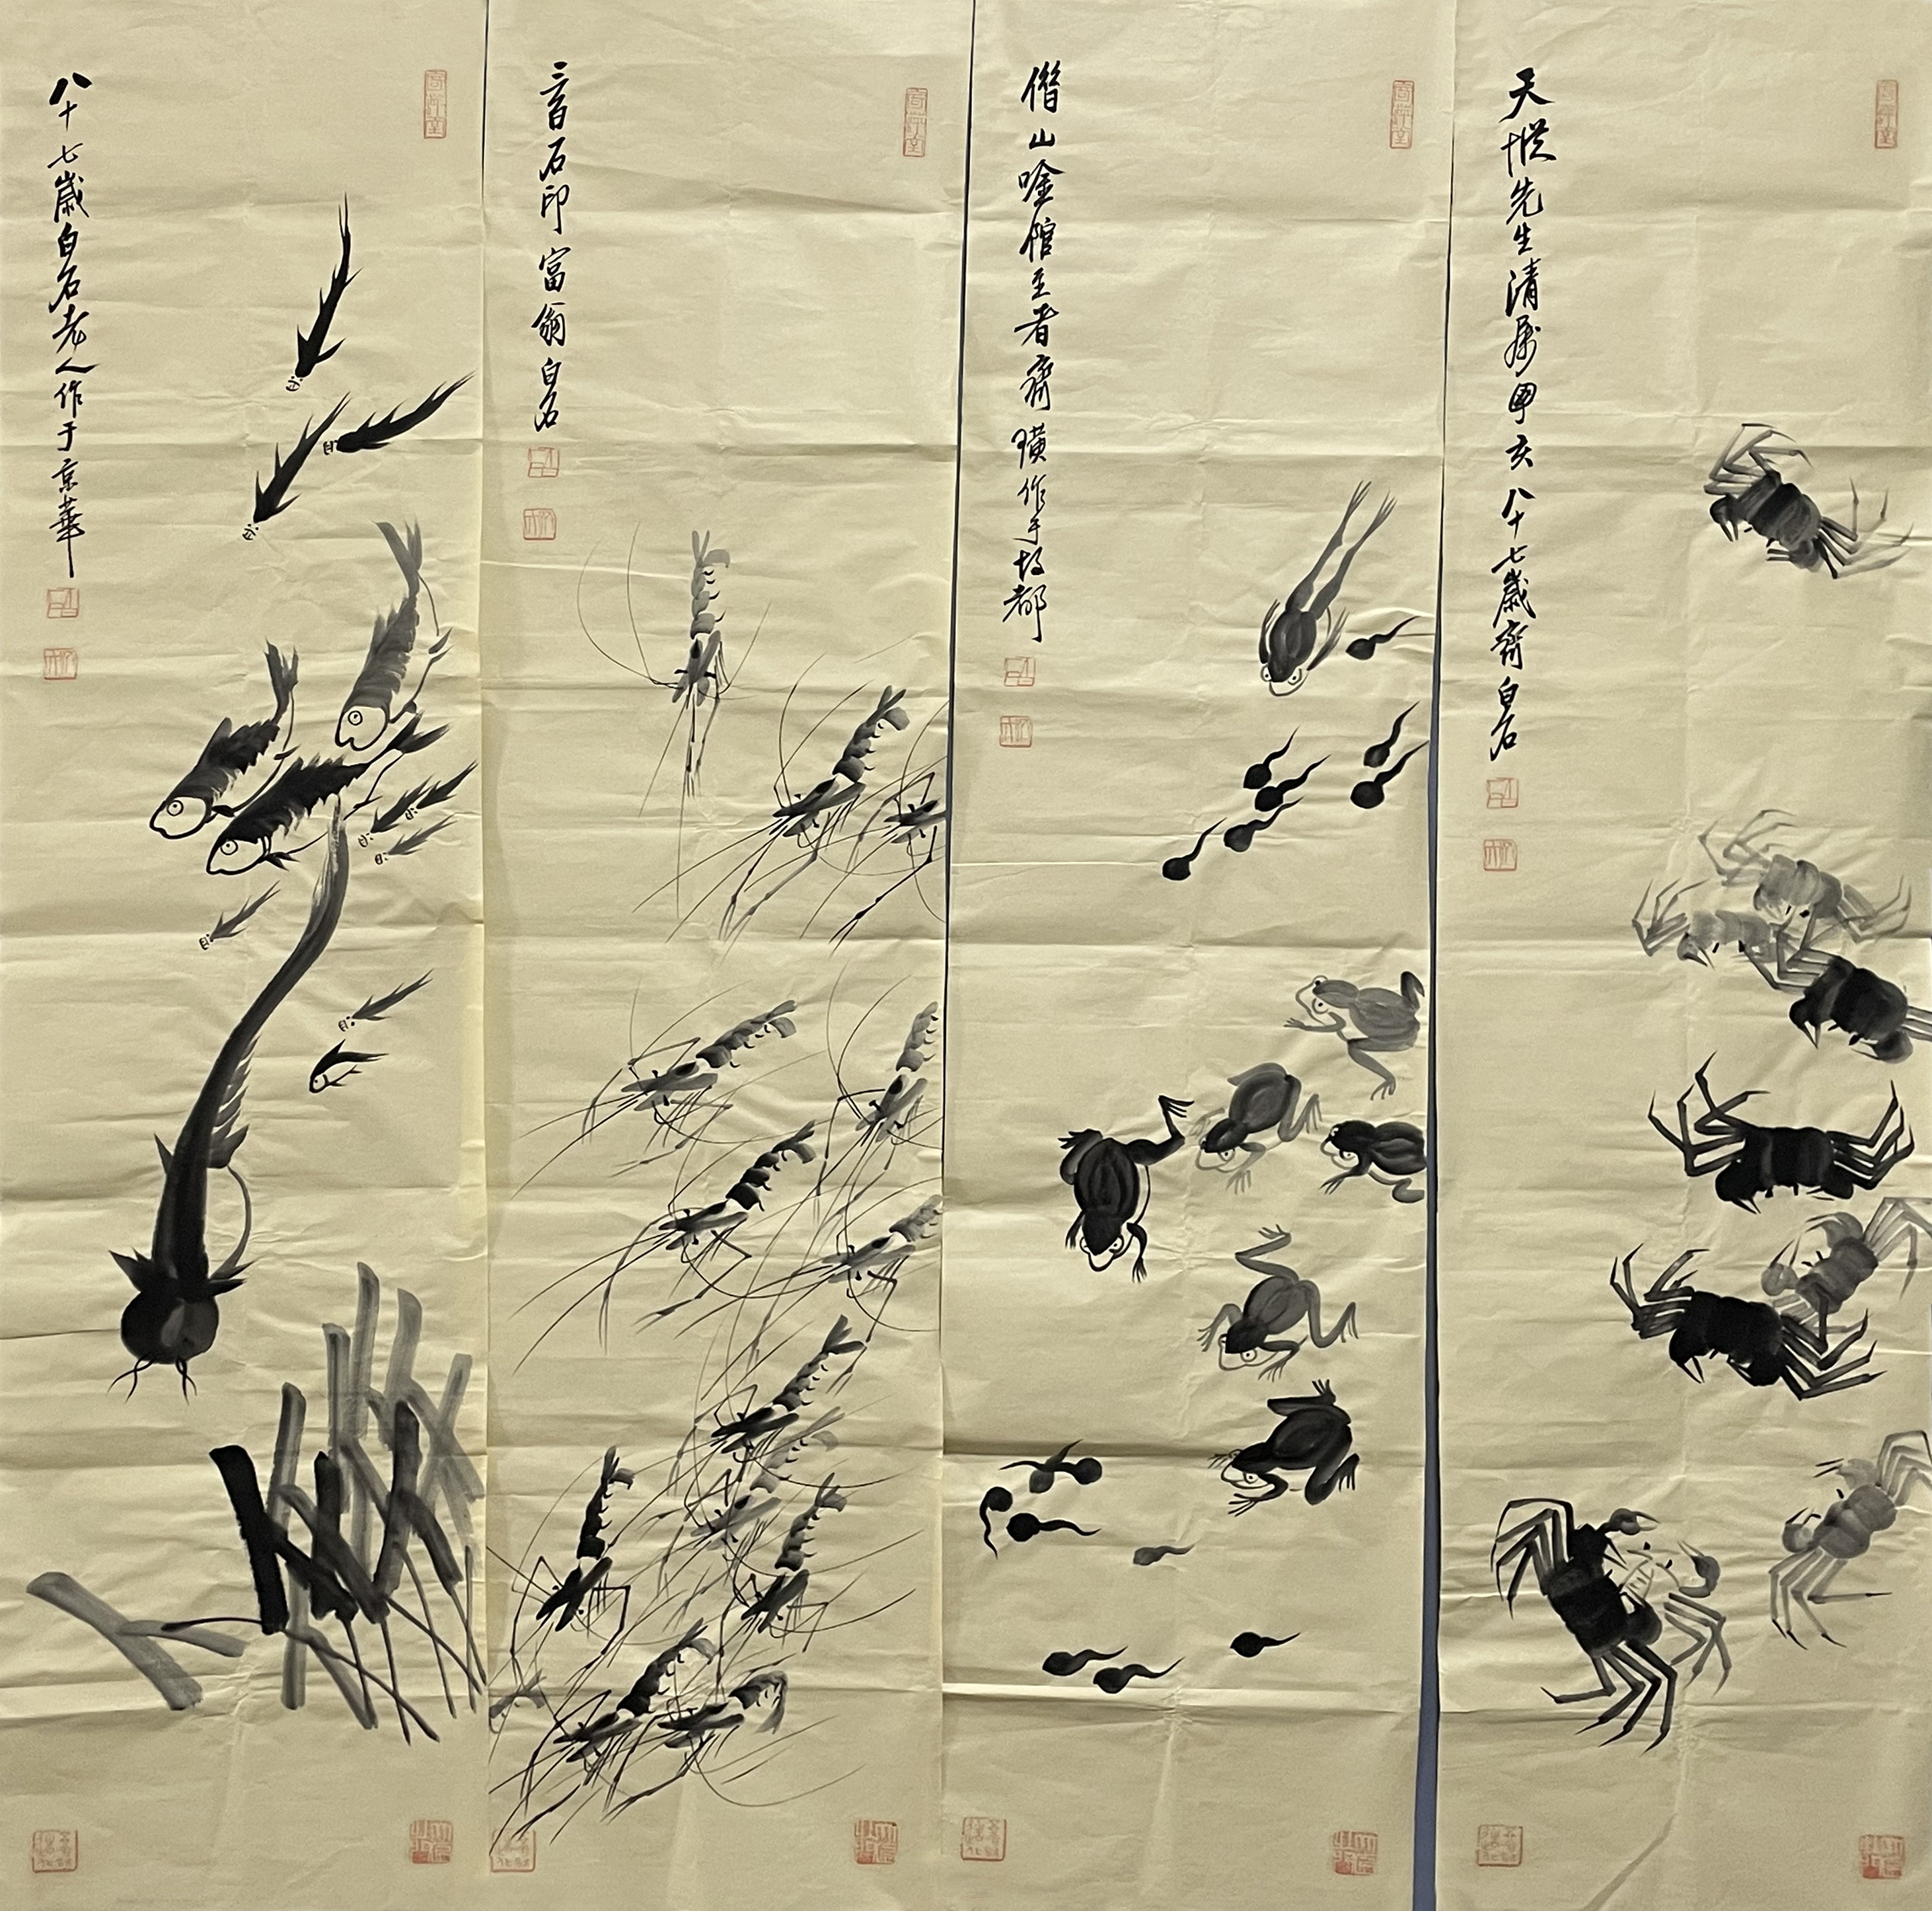 天先生清屬甲亥八十七歲齊白石
借山唫館主者齊璜作于故都
三百石印富翁白石
八十七歲白石老人作于京華